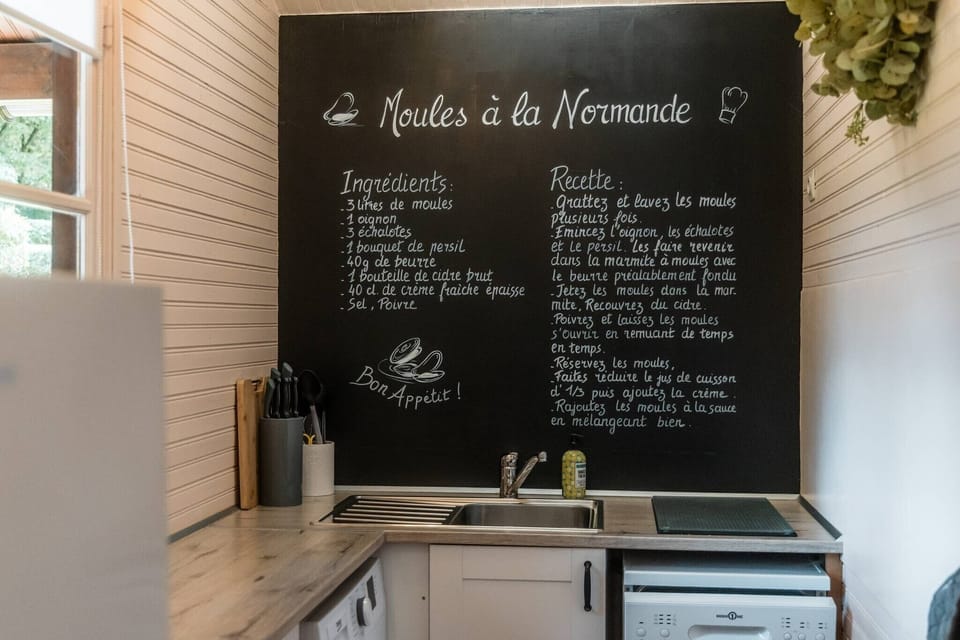 Moules à la Normande
Ingrédients:
- 3 litres de moules
- 1 oignon
- 3 échalotes
- 1 bouquet de persil
- 40g de beurre
- 1 bouteille de cidre brut
- 40 cl de crème fraîche épaisse
- Sel, Poivre
Bon Appétit !
Recette :
. Grattez et lavez les moules
plusieurs fois.
. Émincez l'oignon, les échalotes
et le persil. Les faire revenir
dans la marmite à moules avec
le beurre préalablement fondu
. Jetez les moules dans la mar-
mite, Recouvrez du cidre.
. Poivrez et laissez les moules
s'ouvrir en remuant de temps
en temps.
. Réservez les moules,
. Faites réduire le jus de cuisson
d'1/3 puis ajoutez la crème.
. Rajoutez les moules à la sauce
en mélangeant bien.